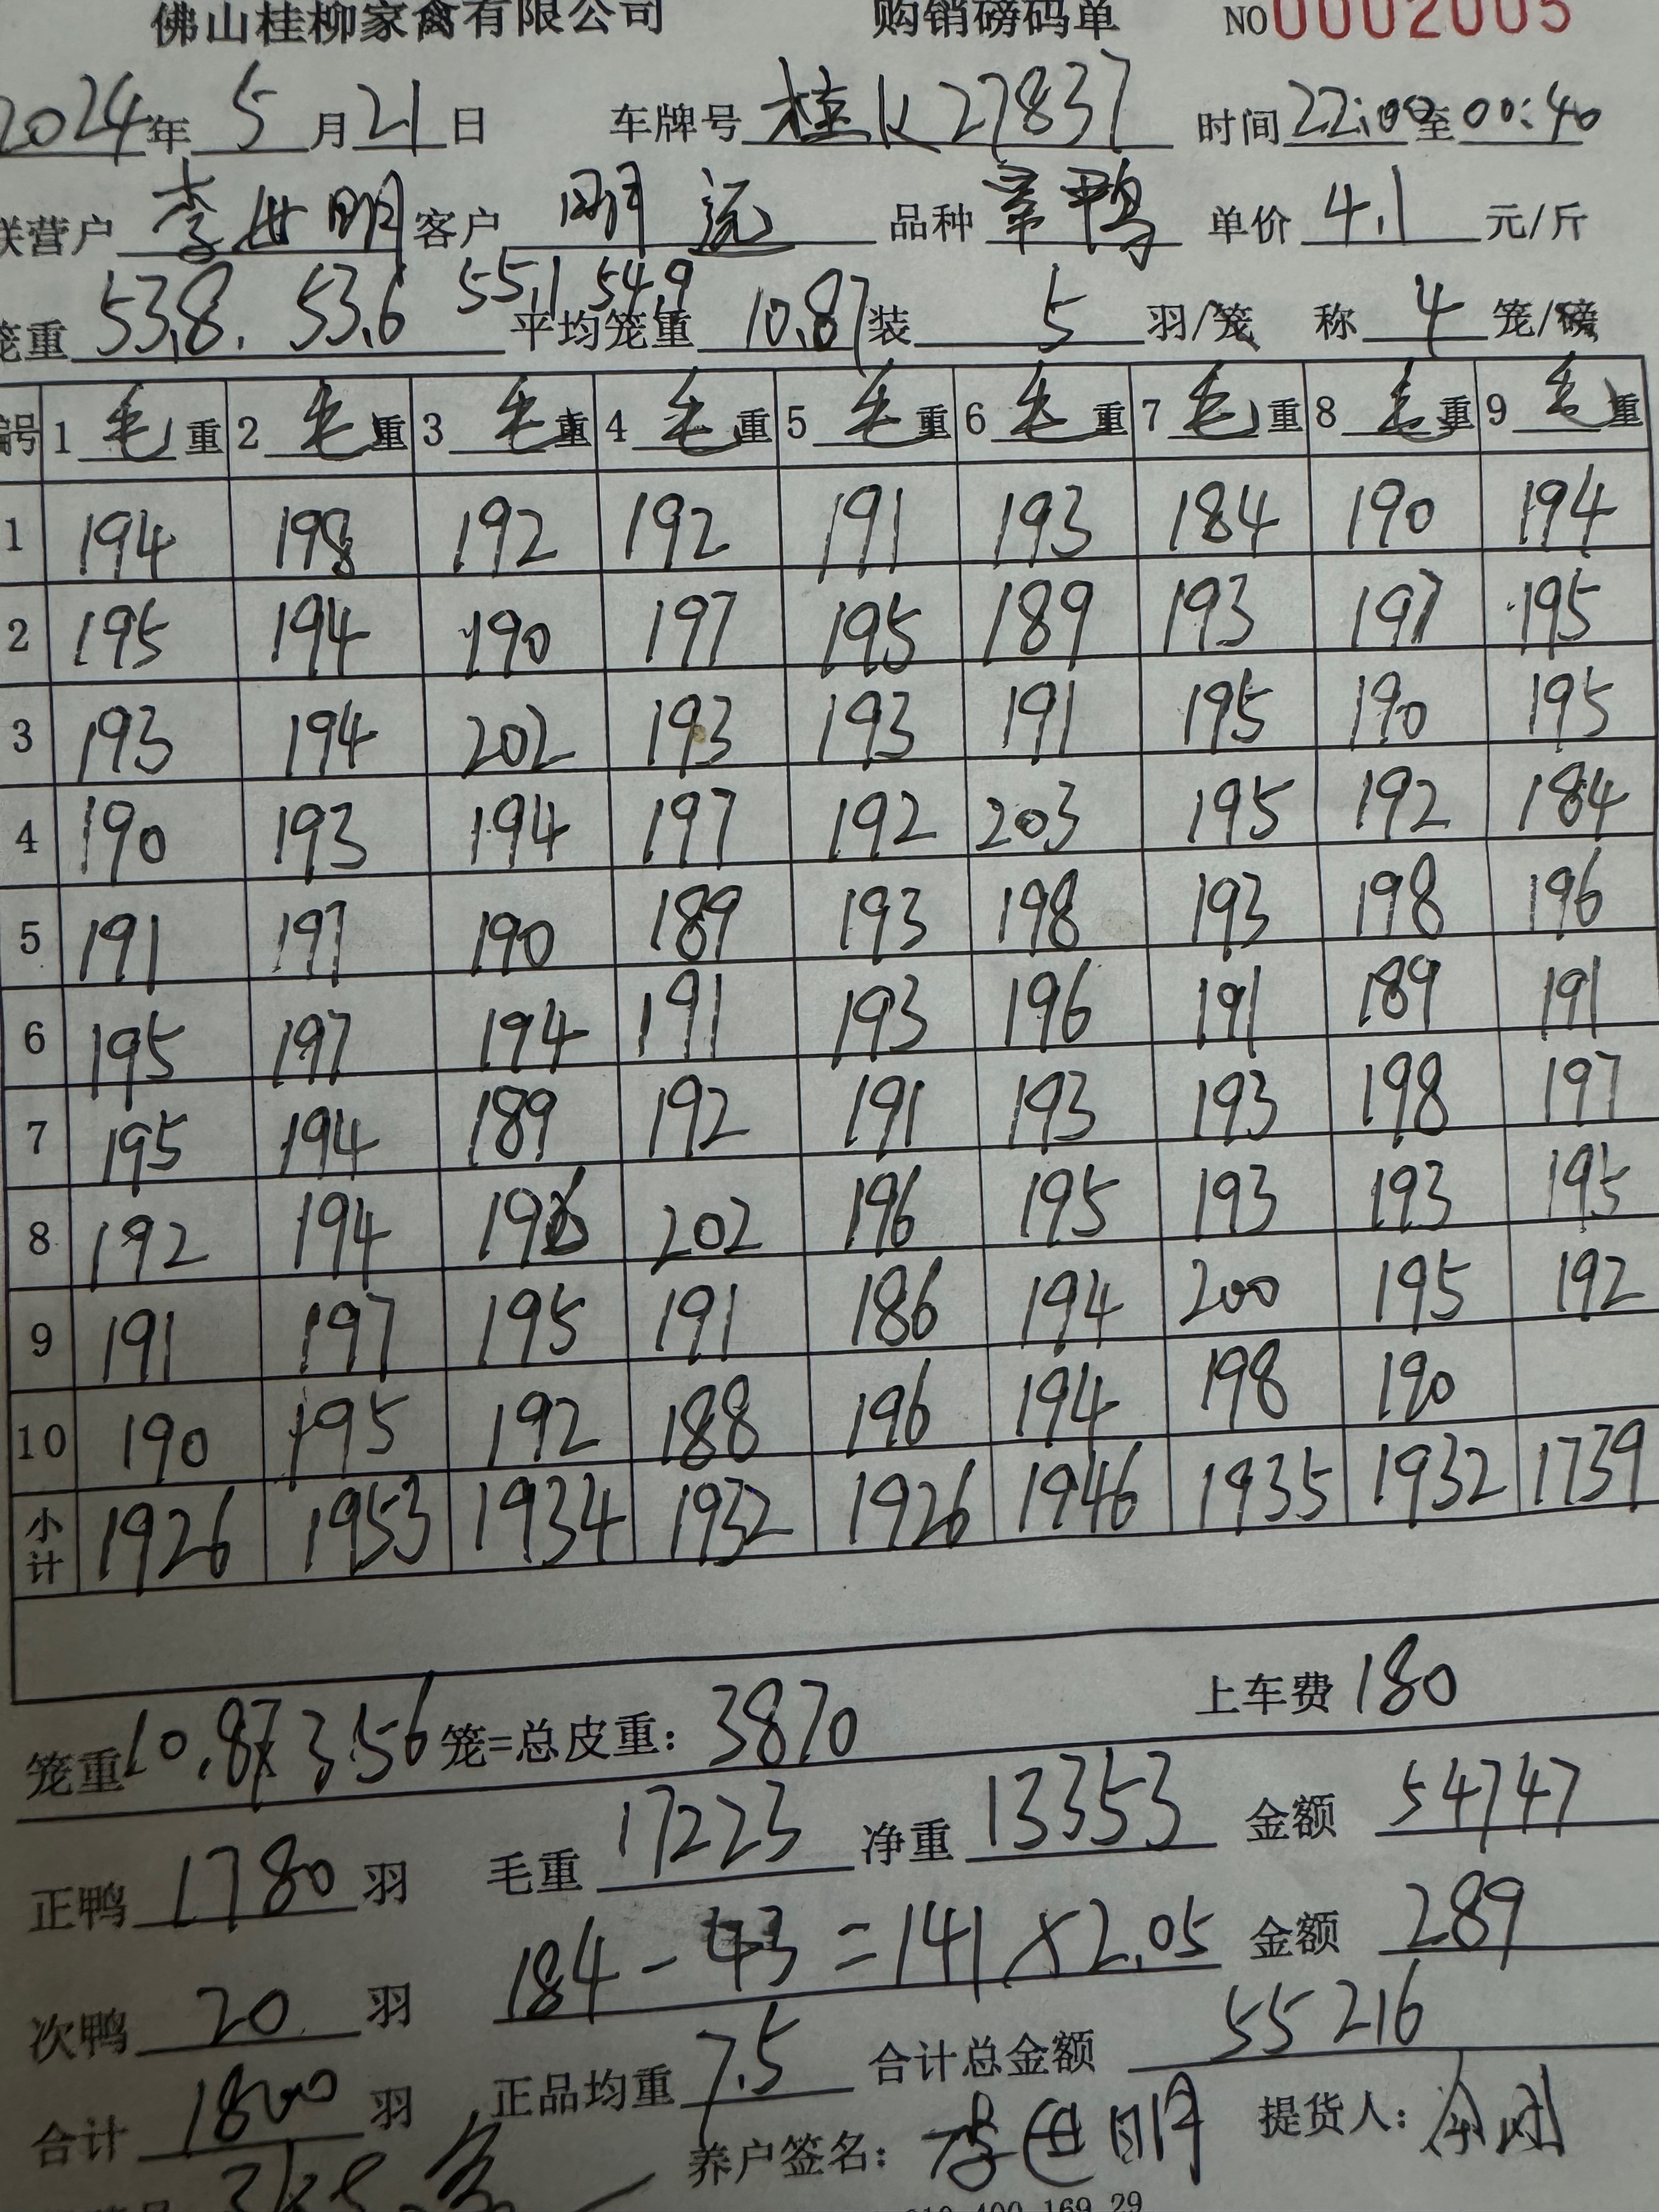 佛山桂柳家禽有限公司 购销磅码单 NO 0002005
2024年 5 月 21 日 车牌号 桂K27837 时间 22:00 至 00:40
联营户 李世明 客户 明远 品种 羊鸭 单价 4.1 元/斤
笼重 53.8. 53.6 55.1 54.9 平均笼重 10.87 装 5 羽/笼 称 4 笼/磅
编号 1 毛 重 2 毛 重 3 毛 重 4 毛 重 5 毛 重 6 毛 重 7 毛 重 8 毛 重 9 毛 重
1 194 198 192 192 191 193 184 190 194
2 195 194 190 197 195 189 193 197 195
3 193 194 202 193 193 191 195 190 195
4 190 193 194 197 192 203 195 192 184
5 191 197 190 189 193 198 193 198 196
6 195 197 194 191 193 196 191 189 191
7 195 194 189 192 191 193 193 198 197
8 192 194 196 202 196 195 193 193 195
9 191 197 195 191 186 194 200 195 192
10 190 195 192 188 196 194 198 190
小计 1926 1953 1934 1932 1926 1946 1935 1932 1739
笼重 10.87 X 356 笼=总皮重: 3870 上车费 180
正鸭 1780 羽 毛重 17223 净重 13353 金额 54747
次鸭 20 羽 184-43=141×2.05 金额 289
合计 1800 羽 正品均重 7.5 合计总金额 55216
养户签名: 李世明 提货人: